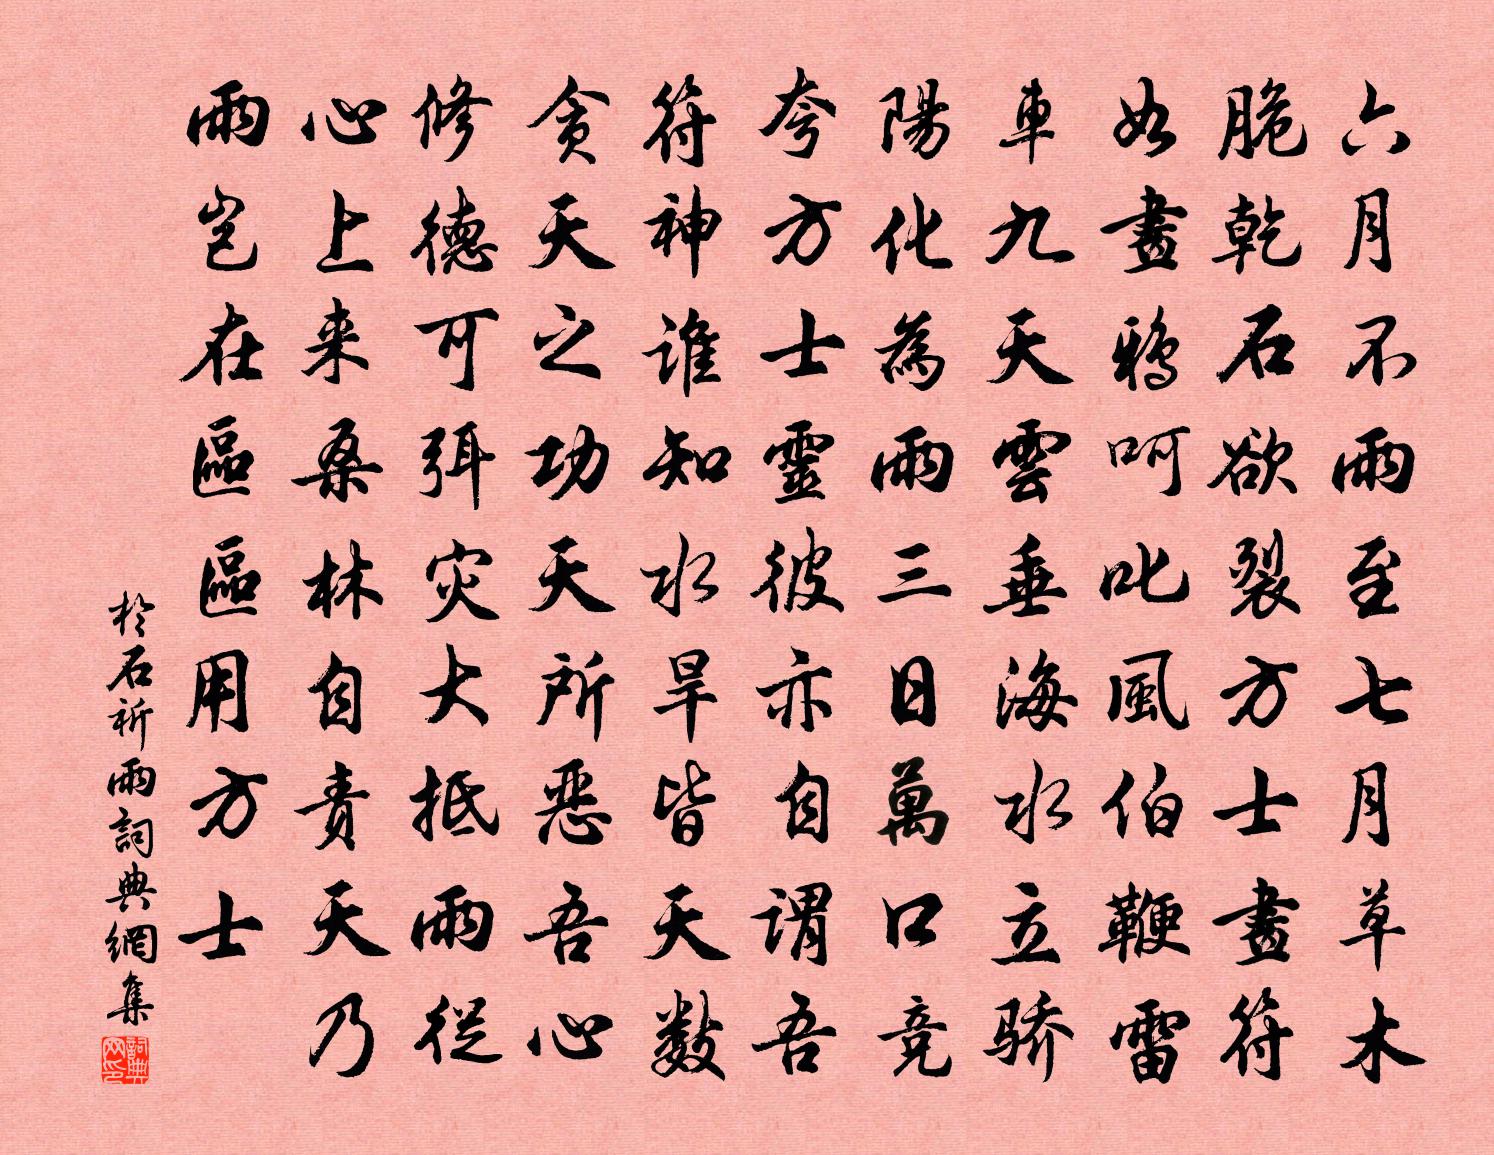 六月不雨至七月草木
脆乾石欲裂方士畫符
如畫鴉呵叱風伯鞭雷
車九天雲垂海水立骄
陽化為雨三日萬口竞
夸方士靈彼亦自谓吾
符神谁知水旱皆天数
贪天之功天所恶吾心
修德可弭灾大抵雨從
心上来桑林自责天乃
雨岂在區區用方士
於石祈雨詞典網集
詞典网印